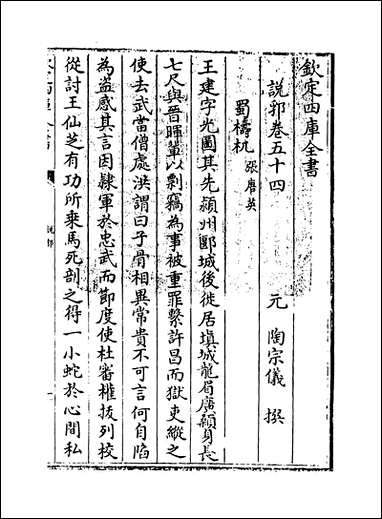 欽定四庫全書
說郛卷五十四
元 陶宗儀 撰
蜀檮杌 張唐英
王建字光圖其先潁州郾城後徙居填城龍眉廣顙身長
七尺與晉暉輩以剽竊為事被重罪繫許昌而獄吏縱之
使去武當僧處洪謂曰子骨相異常貴不可言何自陷
為盗感其言因隸軍於忠武而節度使杜審權拔列校
從討王仙芝有功所乗馬死剖之得一小蛇於心間私
說郛